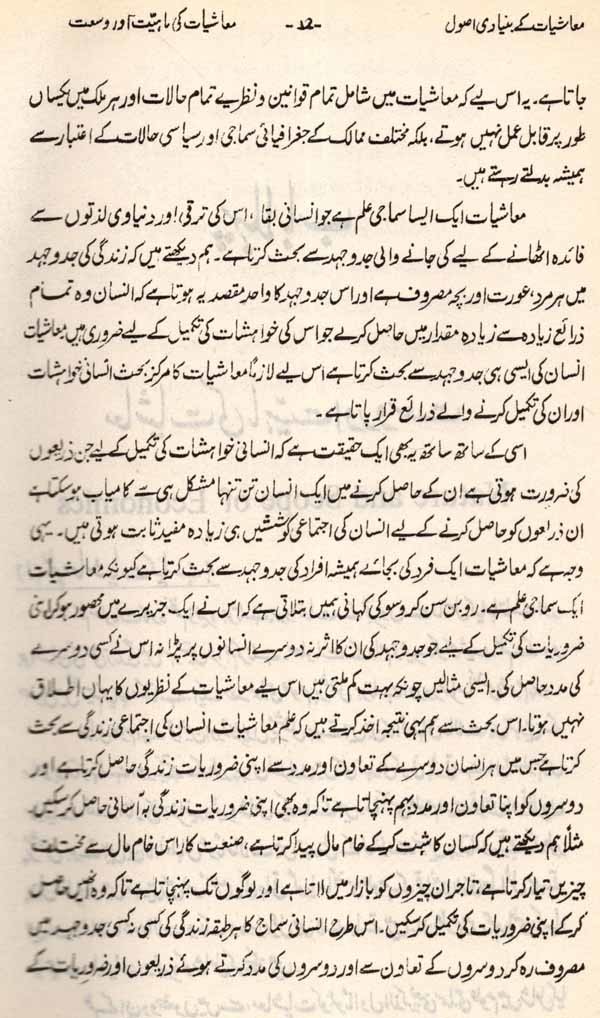 معاشیات کے بنیادی اصول -12- معاشیات کی ماہیت اور وسعت
جاتا ہے۔ یہ اس لیے کہ معاشیات میں شامل تمام قوانین و نظریے تمام حالات اور ہر ملک میں یکساں
طور پر قابل عمل نہیں ہوتے، بلکہ مختلف ممالک کے جغرافیائی سماجی اور سیاسی حالات کے اعتبار سے
ہمیشہ بدلتے رہتے ہیں۔
معاشیات ایک ایسا سماجی علم ہے جو انسانی بقا، اس کی ترقی اور دنیاوی لذتوں سے
فائدہ اٹھانے کے لیے کی جانے والی جدوجہد سے بحث کرتا ہے۔ ہم دیکھتے ہیں کہ زندگی کی جدوجہد
میں ہر مرد، عورت اور بچہ مصروف ہے اور اس جدوجہد کا واحد مقصد یہ ہوتا ہے کہ انسان وہ تمام
ذرائع زیادہ سے زیادہ مقدار میں حاصل کرلے جو اس کی خواہشات کی تکمیل کے لیے ضروری ہیں معاشیات
انسان کی ایسی ہی جدوجہد سے بحث کرتا ہے اس لیے لازماً معاشیات کا مرکز بحث انسانی خواہشات
اور ان کی تکمیل کرنے والے ذرائع قرار پاتا ہے۔
اسی کے ساتھ ساتھ یہ بھی ایک حقیقت ہے کہ انسانی خواہشات کی تکمیل کے لیے جن ذریعوں
کی ضرورت ہوتی ہے ان کے حاصل کرنے میں ایک انسان تن تنہا مشکل ہی سے کامیاب ہو سکتا ہے
ان ذرائعوں کو حاصل کرنے کے لیے انسان کی اجتماعی کوششیں ہی زیادہ مفید ثابت ہوتی ہیں۔ یہی
وجہ ہے کہ معاشیات ایک فرد کی بجائے ہمیشہ افراد کی جدوجہد سے بحث کرتا ہے کیونکہ معاشیات
ایک سماجی علم ہے۔ روبن سن کروسو کی کہانی ہمیں بتلاتی ہے کہ اس نے ایک جزیرے میں محصور ہو کر اپنی
ضروریات کی تکمیل کے لیے جو جدوجہد کی ان کا اثر نہ دوسرے انسانوں پر پڑا نہ اس نے کسی دوسرے
کی مدد حاصل کی۔ ایسی مثالیں چونکہ بہت کم ملتی ہیں اس لیے معاشیات کے نظریوں کا یہاں اطلاق
نہیں ہوتا۔ اس بحث سے ہم یہی نتیجہ اخذ کرتے ہیں کہ علم معاشیات انسان کی اجتماعی زندگی سے بحث
کرتا ہے جس میں ہر انسان دوسرے کے تعاون اور مدد سے اپنی ضروریات زندگی حاصل کرتا ہے اور
دوسروں کو اپنا تعاون اور مدد بہم پہنچاتا ہے تاکہ وہ بھی اپنی ضروریات زندگی بہ آسانی حاصل کر سکیں۔
مثلاً ہم دیکھتے ہیں کہ کسان کاشت کر کے خام مال پیدا کرتا ہے، صنعت کار اس خام مال سے مختلف
چیزیں تیار کرتا ہے، تاجر ان چیزوں کو بازار میں لاتا ہے اور لوگوں تک پہنچاتا ہے تاکہ وہ انھیں حاصل
کر کے اپنی ضروریات کی تکمیل کر سکیں۔ اس طرح انسانی سماج کا ہر طبقہ زندگی کی کسی نہ کسی جدوجہد میں
مصروف رہ کر دوسروں کے تعاون سے اور دوسروں کی مدد کرتے ہوئے ذریعوں اور ضروریات کے